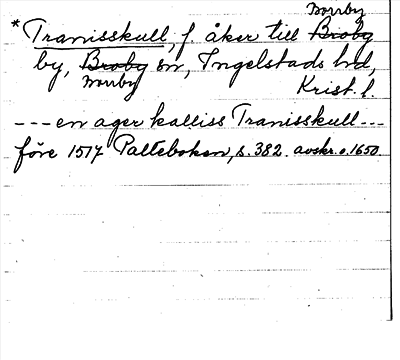 Norrby
*Tranisskull, f. åker till Broby
by, Broby sn, Ingelstads hd,
Norrby Krist. l.
---en ager kalliss Tranisskull---
före 1517 Palteboken, s. 382. avskr. o. 1650.